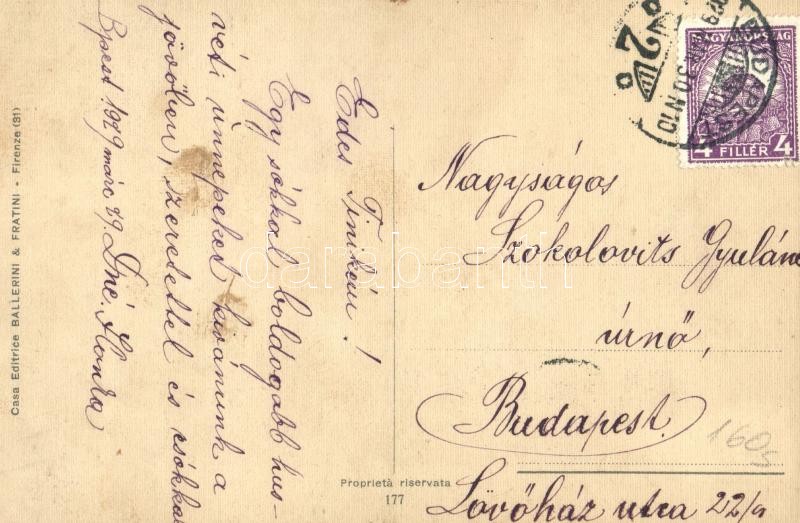 Édes Tinikém!
Egy sokkal boldogabb hus-
véti ünnepeket kivánunk a
jövőben, szeretettel és csókkal
Bpest 1929 márc 29. Dné. Ilonka
Nagyságos
Szokolovits Gyuláné
úrnő,
Budapest.
Lövőház utca 22/a
MAGYARORSZÁG
4 FILLÉR 4
Casa Editrice BALLERINI & FRATINI - Firenze (31)
Proprietà riservata
177
1605
darabanth